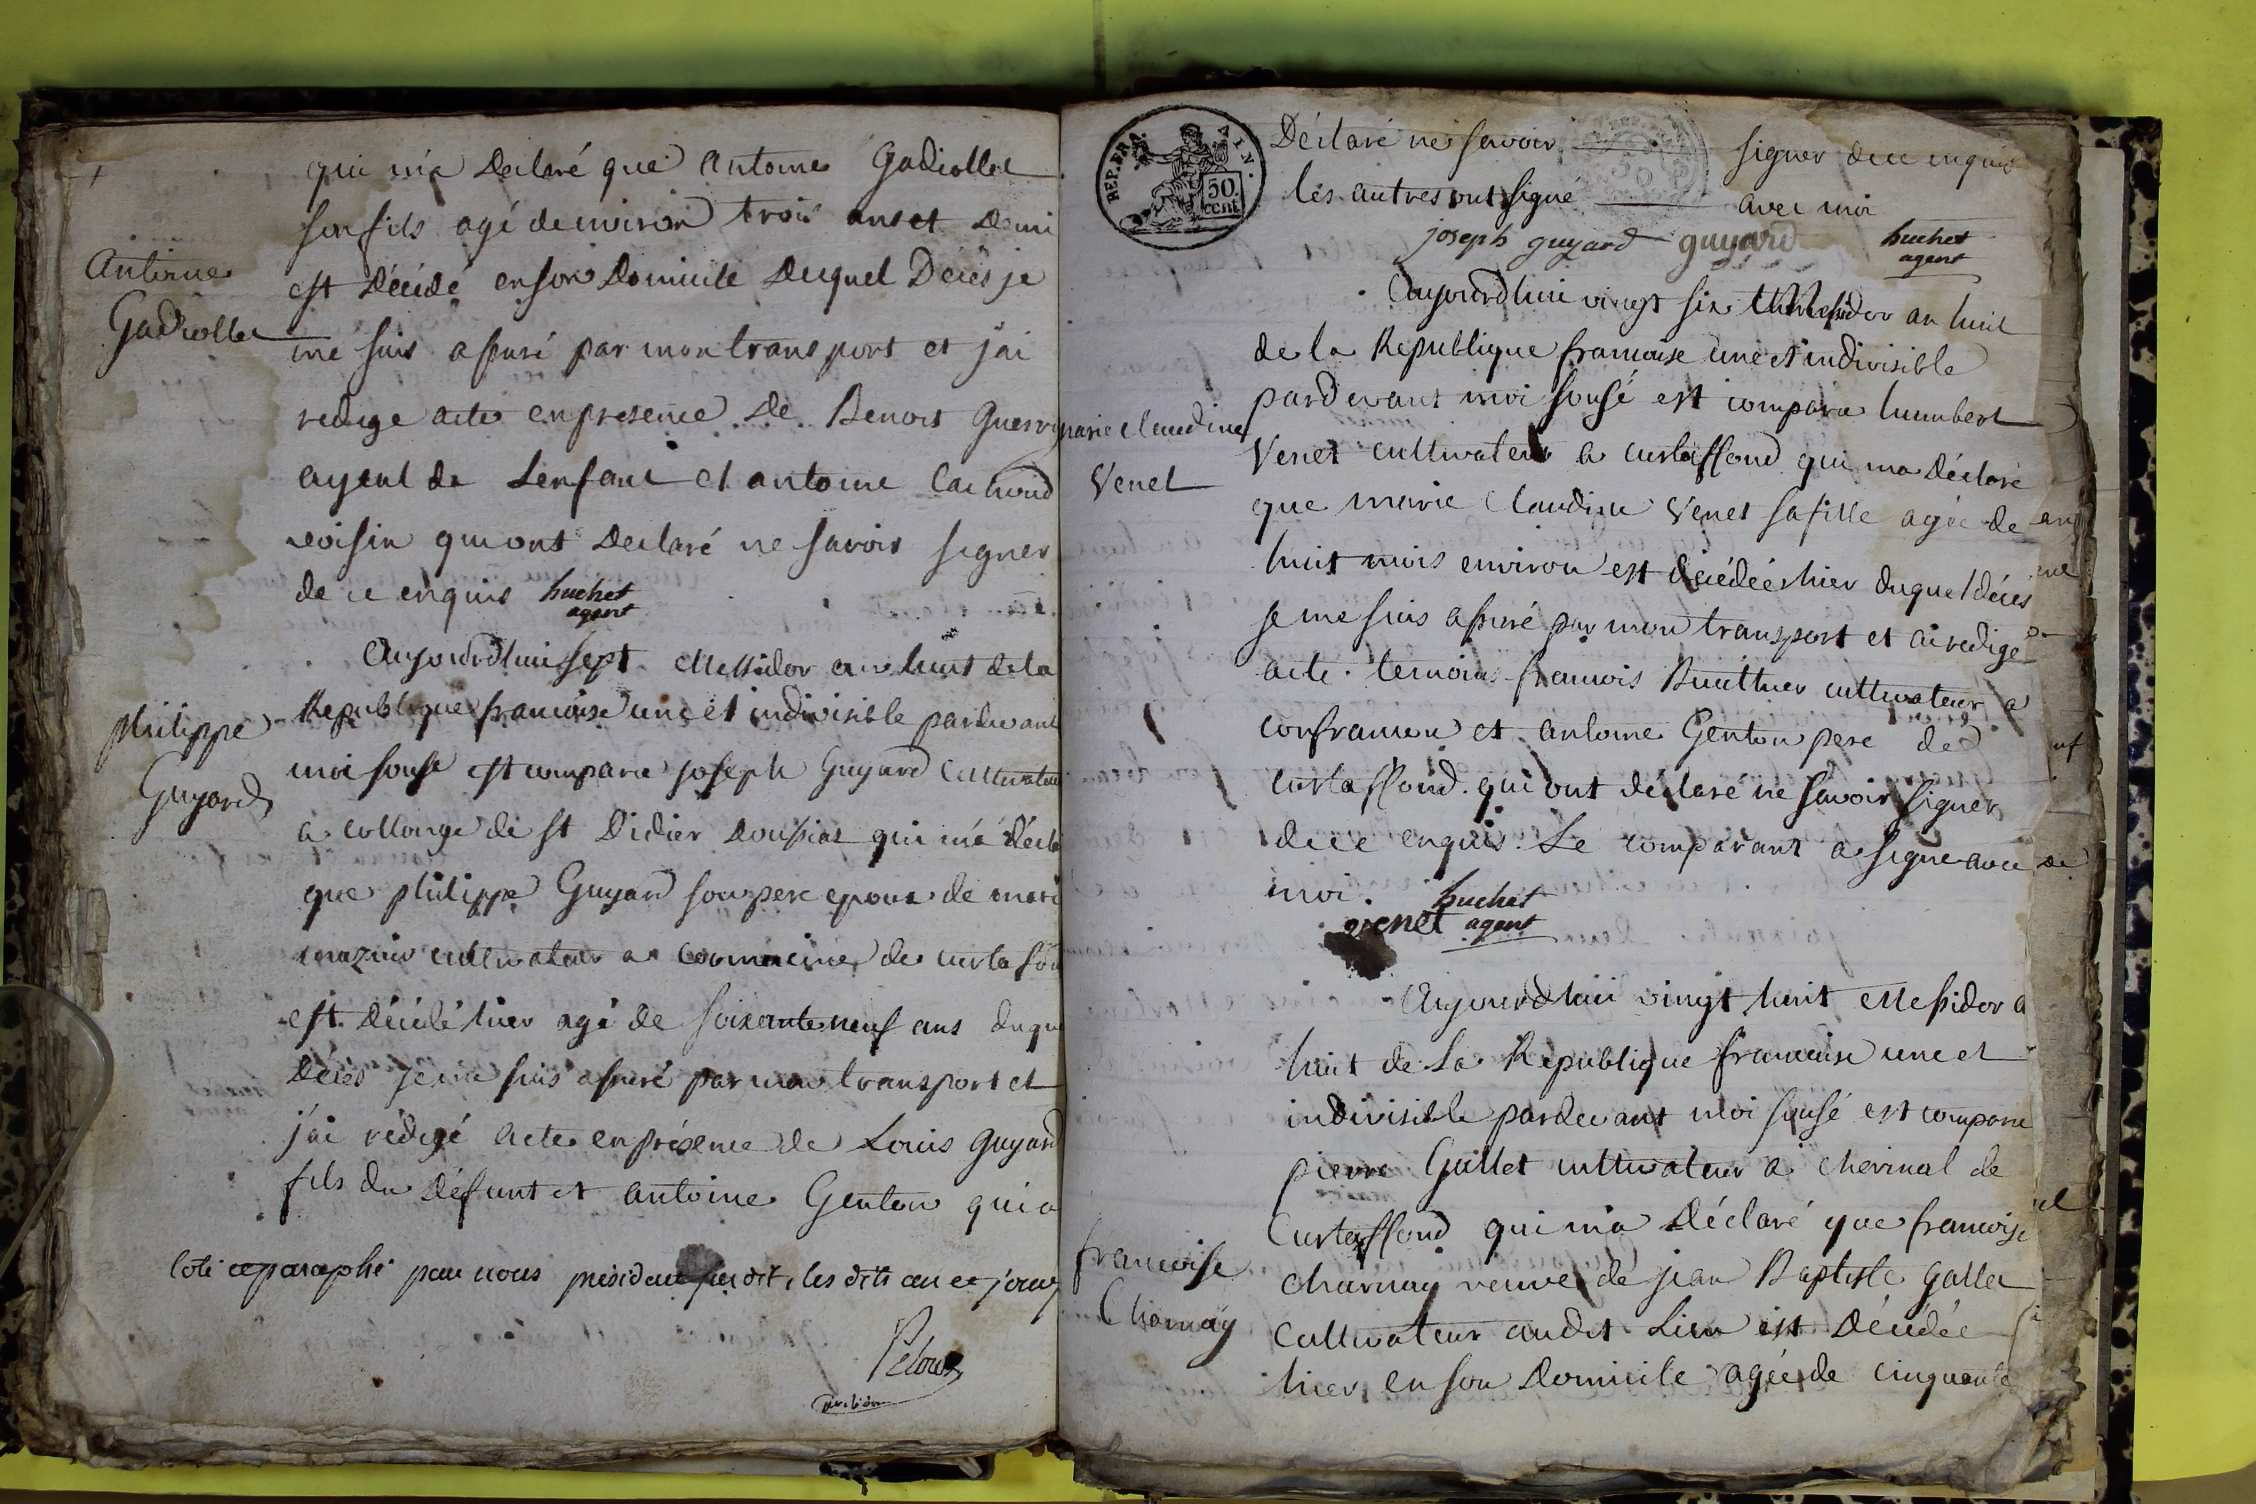 qui m'a Declaré que antoine Gadiollet
son fils agé denviron trois ans et Demi
est Décédé en son Domicile Duquel Décès je
me suis assuré par mon transport et j'ai
redige acte en presence De Benoit Guerry
ayeul de Lenfant et antoine
voisin qui ont Declaré ne savoir signer
de ce enquis huchet
agent
Antoine
Gadiollet
Aujourdhui sept Messidor an huit de la
Republique francoise une et indivisible pardevant
moi sousé est comparu joseph Guyard Cultivateur
a collonge de st Didier Doussiat qui m'a décla
que philippe Guyard son pere epoux de mari
mazuir cultivateur a commune de curtafon
est Décédé hier agé de soixante neuf ans duque
Décès je me suis assuré par mon transport et
j'ai rédigé acte en présence de Louis guyard
fils du défunt et antoine Genton qui a
philippe
Guyard
Coté et paraphé par nous président susdit, les dits an et jour
Pelous
REP. FRA. AIN.
50. cent
Déclaré ne savoir signer de ce enquis
les autres ont signé avec moi
joseph guyard guyard huchet
agent
Aujourdhui vingt six thermidor an huit
de la Republique francoise une et indivisible
pardevant moi sousé est comparu humbert
Venet cultivateur a curtaffond qui ma Déclaré
que marie Claudine Venet sa fille agée de
huit mois environ est décédée hier duquel décès
je me suis assuré par mon transport et ai redigé
acte. temoins francois Buathier cultivateur a
confrancon et antoine Genton pere de
curtaffond. qui ont déclaré ne savoir signer
de ce enquis. Le comparant a signe avec
moi. huchet
venet agent
marie Claudine
Venet
Aujourdhui vingt huit Messidor a
huit de La Republique francaise une et
indivisible pardevant moi sousé est comparu
pierre Gallet cultivateur a chevinal de
Curtaffond qui m'a Déclaré que francoise
charnay veuve de jean Baptiste Gallet
Cultivateur audit Lieu est Décédée
hier en son Domicile agée de cinquante
francoise
Charnay